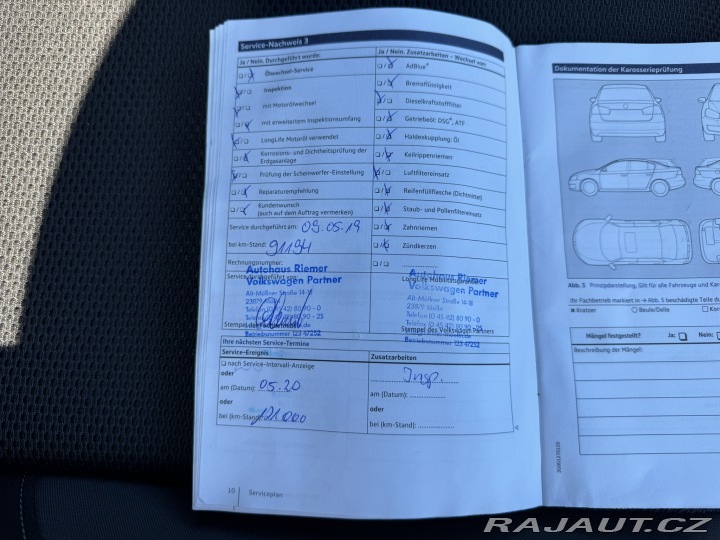 Service-Nachweis 3
Ja / Nein. Durchgeführt wurde:
Ölwechsel-Service
Inspektion
mit Motorölwechsel
mit erweitertem Inspektionsumfang
LongLife Motoröl verwendet
Korrosions- und Dichtheitsprüfung der
Erdgasanlage
Prüfung der Scheinwerfer-Einstellung
Reparaturempfehlung
Kundenwunsch
(auch auf dem Auftrag vermerken)
Service durchgeführt am: 09.05.19
bei km-Stand: 91194
Rechnungsnummer:
Service durchgeführt von:
Autohaus Riemer
Volkswagen Partner
Alt-Möllner Straße 14-18
23879 Mölln
Telefon (0 45 42) 80 90 - 0
Stempel des
Betriebsnummer 123 47252
Ja / Nein. Zusatzarbeiten - Wechsel von:
AdBlue®
Bremsflüssigkeit
Dieselkraftstofffilter
Getriebeöl: DSG®, ATF
Haldexkupplung: Öl
Keilrippenriemen
Luftfiltereinsatz
Reifenfüllflasche (Dichtmittel)
Staub- und Pollenfiltereinsatz
Zahnriemen
Zündkerzen
LongLife Mobilitätsgarantie
Autohaus Riemer
Volkswagen Partner
Alt-Möllner Straße 14-18
23879 Mölln
Telefon (0 45 42) 80 90 - 0
Stempel des Volkswagen Partners
Betriebsnummer 123 47252
Ihre nächsten Service-Termine
Service-Ereignis
nach Service-Intervall-Anzeige
oder
am (Datum): 05.20
oder
bei (km-Stand): 121000
Zusatzarbeiten
Insp.
am (Datum):
oder
bei (km-Stand):
10 Serviceplan
Dokumentation der Karosserieprüfung
Abb. 5 Prinzipdarstellung. Gilt für alle Fahrzeuge und
Ihr Fachbetrieb markiert in → Abb. 5 beschädigte Teile
Kratzer
Beule/Delle
Mängel festgestellt? Ja: Nein:
Beschreibung der Mängel:
RAJAUT.CZ